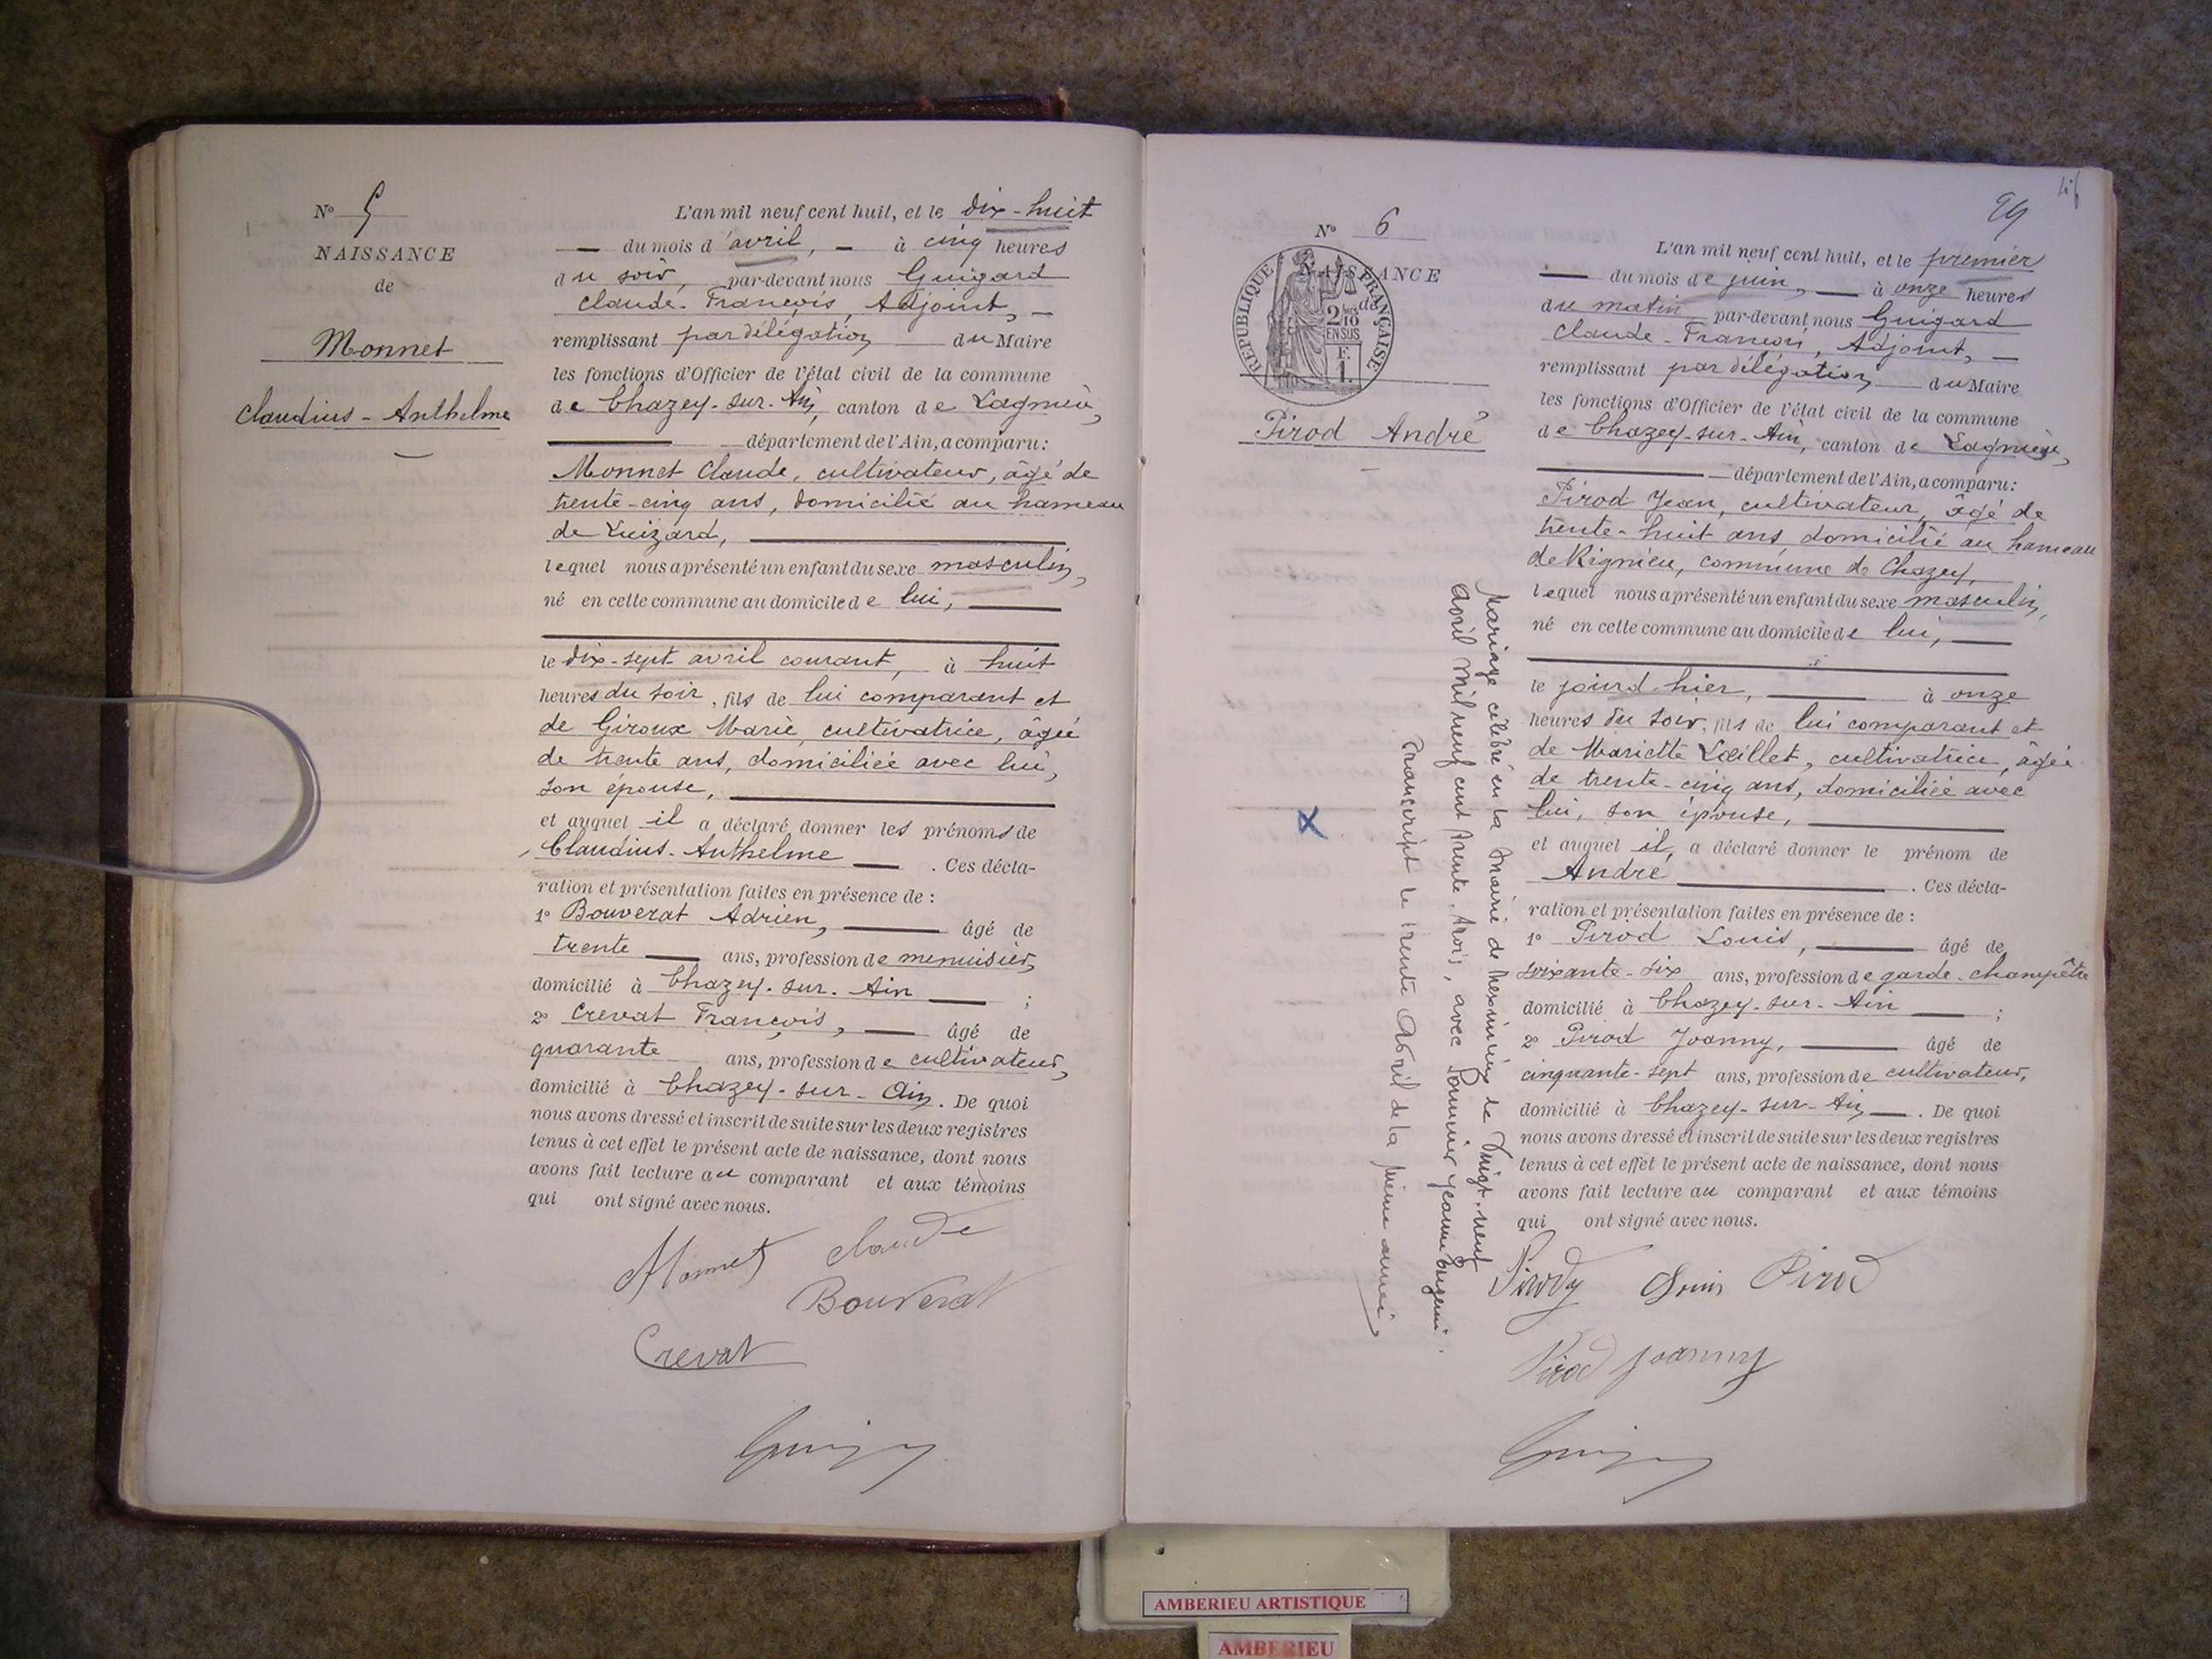 N° 5
NAISSANCE
de
Monnet
Claudius-Anthelme
L'an mil neuf cent huit, et le dix-huit
du mois d'avril, à cinq heures
du soir, par-devant nous Guigard
Claude-François, Adjoint,
remplissant par délégation du Maire
les fonctions d'Officier de l'état civil de la commune
de Chazey-sur-Ain, canton de Lagnieu,
département de l'Ain, a comparu:
Monnet Claude, cultivateur, âgé de
trente-cinq ans, domicilié au hameau
de Luizard,
lequel nous a présenté un enfant du sexe masculin,
né en cette commune au domicile de lui,
le dix-sept avril courant, à huit
heures du soir, fils de lui comparant et
de Giroux Marie, cultivatrice, âgée
de trente ans, domiciliée avec lui,
son épouse,
et auquel il a déclaré donner les prénoms de
Claudius-Anthelme . Ces décla-
ration et présentation faites en présence de :
1° Bouverat Adrien, âgé de
trente ans, profession de menuisier,
domicilié à Chazey-sur-Ain ;
2° Crevat François, âgé de
quarante ans, profession de cultivateur,
domicilié à Chazey-sur-Ain. De quoi
nous avons dressé et inscrit de suite sur les deux registres
tenus à cet effet le présent acte de naissance, dont nous
avons fait lecture au comparant et aux témoins
qui ont signé avec nous.
Monnet Claude
Bouverat
Crevat
49
N° 6
NAISSANCE
de
REPUBLIQUE FRANÇAISE
2/10
EN SUS
F.
1.
Pirod André
L'an mil neuf cent huit, et le premier
du mois de juin, à onze heures
du matin par-devant nous Guigard
Claude-François, Adjoint,
remplissant par délégation du Maire
les fonctions d'Officier de l'état civil de la commune
de Chazey-sur-Ain, canton de Lagnieu,
département de l'Ain, a comparu:
Pirod Jean, cultivateur, âgé de
trente-huit ans domicilié au hameau
de Rignieu, commune de Chazey,
lequel nous a présenté un enfant du sexe masculin,
né en cette commune au domicile de lui,
le jourd-hier, à onze
heures du soir, fils de lui comparant et
de Mariette Laillet, cultivatrice, âgée
de trente-cinq ans, domiciliée avec
lui, son épouse,
et auquel il a déclaré donner le prénom de
André . Ces décla-
ration et présentation faites en présence de :
1° Pirod Louis, âgé de
soixante-six ans, profession de garde-champêtre
domicilié à Chazey-sur-Ain ;
2° Pirod Joanny, âgé de
cinquante-sept ans, profession de cultivateur,
domicilié à Chazey-sur-Ain . De quoi
nous avons dressé et inscrit de suite sur les deux registres
tenus à cet effet le présent acte de naissance, dont nous
avons fait lecture au comparant et aux témoins
qui ont signé avec nous.
Mariage célébré en la Mairie de Meximieux le Vingt-neuf
avril mil neuf cent trente-trois, avec Jeanne Eugénie.
Transcript le trente Avril de la même année
Louis Pirod
Pirod Joanny
AMBERIEU ARTISTIQUE
AMBERIEU